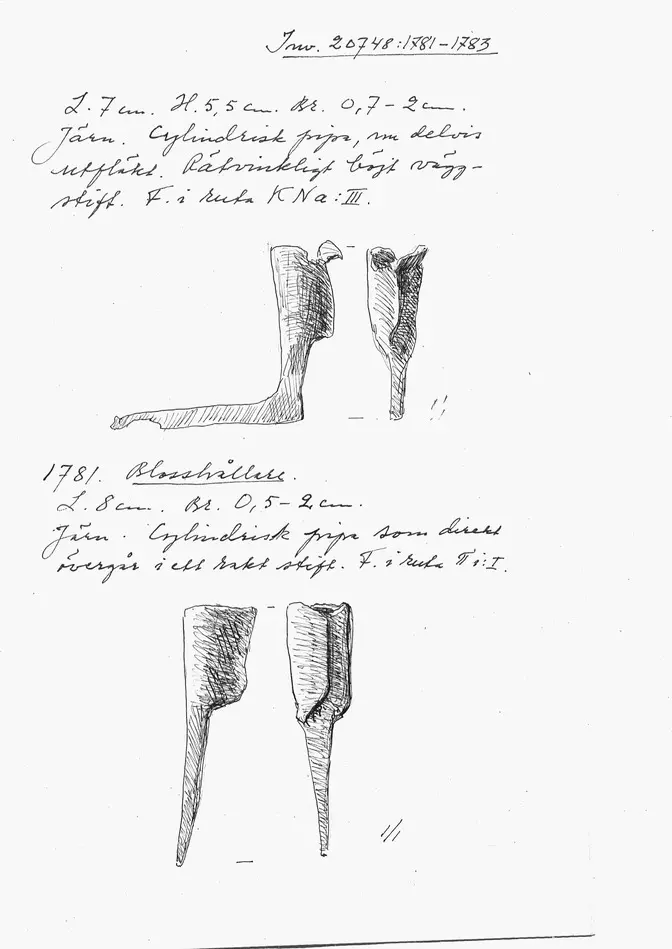 Inv. 20748:1781-1783
L. 7 cm. H. 5,5 cm. Br. 0,7-2 cm.
Järn. Cylindrisk pipa, nu delvis
utfläkt. Rätvinkligt böjt vägg-
stift. F. i ruta KNa:III.
1/1
1781. Blosshållare.
L. 8 cm. Br. 0,5-2 cm.
Järn. Cylindrisk pipa som direkt
övergår i ett rakt stift. F. i ruta Πi:I.
1/1